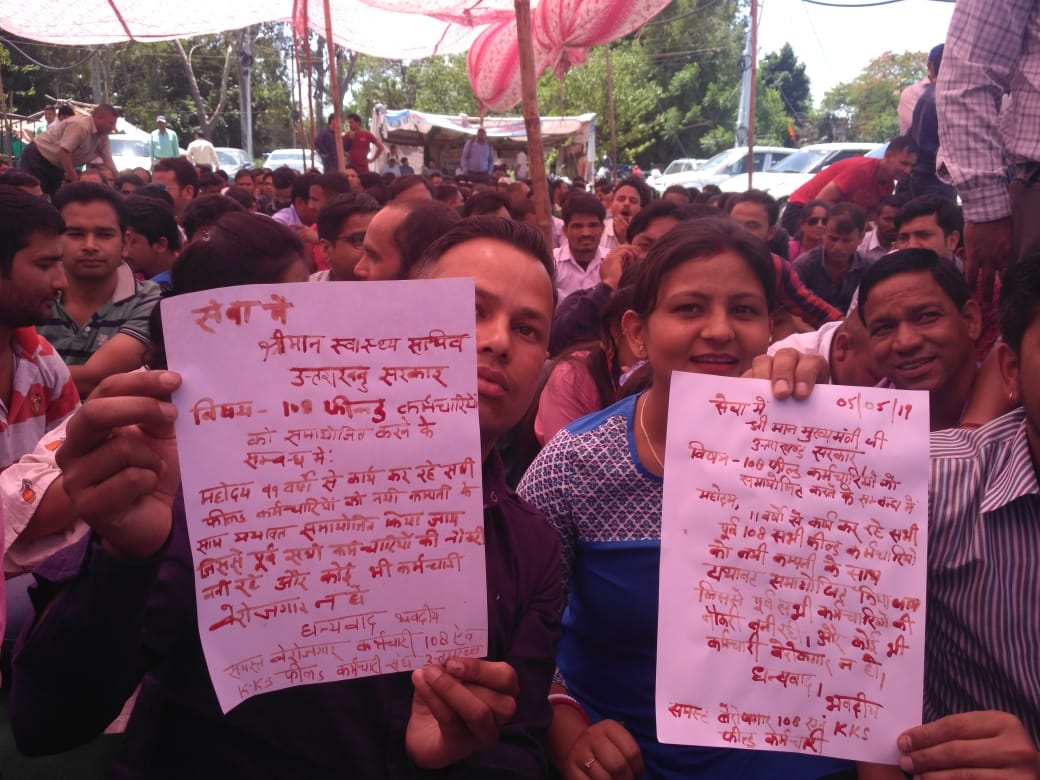 सेवा में
श्रीमान स्वास्थ्य सचिव
उत्तराखण्ड सरकार
विषय - 108 फील्ड कर्मचारियों
को समायोजित करने के
सम्बन्ध में:
महोदय 11 वर्षो से कार्य कर रहे सभी
फील्ड कर्मचारियों को नयी कम्पनी के
साथ यथावत समायोजित किया जाय
जिससे पूर्व सभी कर्मचारियों की नौकरी
बनी रहे और कोई भी कर्मचारी
बेरोजगार न हो
धन्यवाद भवदीय
समस्त बेरोजगार कर्मचारी 108 एव
K.K.S फील्ड कर्मचारी संघ उत्तराखण्ड
सेवा में 05/05/19
श्री मान मुख्यमंत्री जी
उत्तराखण्ड सरकार
विषय - 108 फील्ड कर्मचारियों को
समायोजित करने के सम्बन्ध में
महोदय, 11 वर्षो से कार्य कर रहे सभी
पूर्व 108 सभी फील्ड कर्मचारियो
को नयी कम्पनी के साथ
यथावत समायोजित किया जाय
जिससे पूर्व सभी कर्मचारियों की
नौकरी बनी रहे। और कोई भी
कर्मचारी बेरोजगार न हो।
धन्यवाद।
भवदीय
समस्त बेरोजगार 108 एवं KKS
फील्ड कर्मचारी